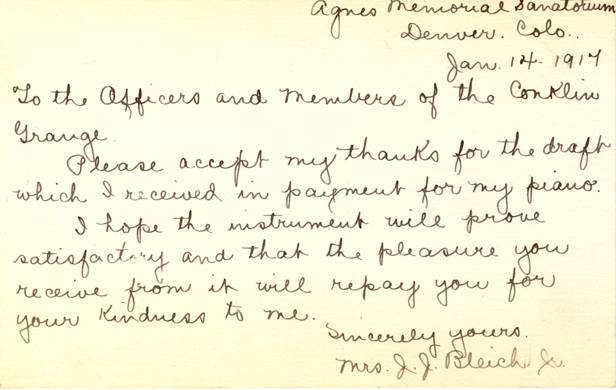 Agnes Memorial Sanatorium
Denver. Colo..
Jan. 14- 1917
To the Officers and Members of the Conklin
Grange.
Please accept my thanks for the draft
which I received in payment for my piano.
I hope the instrument will prove
satisfactory and that the pleasure you
receive from it will repay you for
your kindness to me.
Sincerely yours.
Mrs. J. J. Bleich Jr.